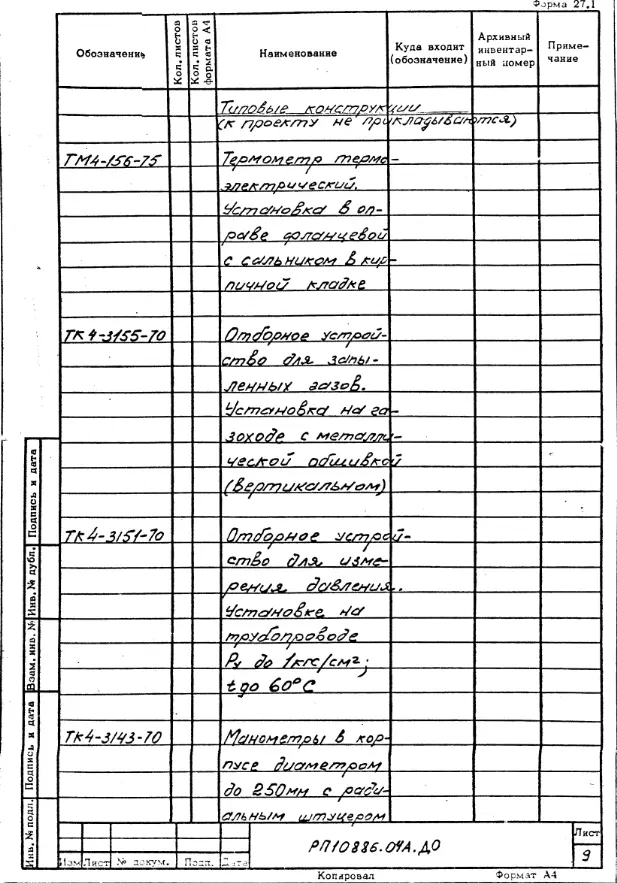 Форма 27.1
Обозначение
Кол. листов
Кол. листов формата А4
Наименование
Куда входит (обозначение)
Архивный инвентар-ный номер
Приме-чание
Типовые конструкции
(к проекту не прикладываются)
ТМ4-156-75
Термометр термо-
электрический.
Установка в оп-
раве фланцевой
с сальником в кир-
пичной кладке
ТК4-3155-70
Отборное устрой-
ство для запы-
ленных газов.
Установка на га-
зоходе с металли-
ческой обшивкой
(вертикальном)
ТК4-3151-70
Отборное устрой-
ство для изме-
рения давления.
Установке на
трубопроводе
Ру до 1кгс/см²;
t до 60°С
ТК4-3143-70
Манометры в кор-
пусе диаметром
до 250мм с ради-
альным штуцером
Инв.№ подл.
Подпись и дата
Взам. инв. №
Инв. № дубл.
Подпись и дата
Изм
Лист
№ докум.
Подп.
Дата
РП10886.04А.ДО
Лист
9
Копировал
Формат А4